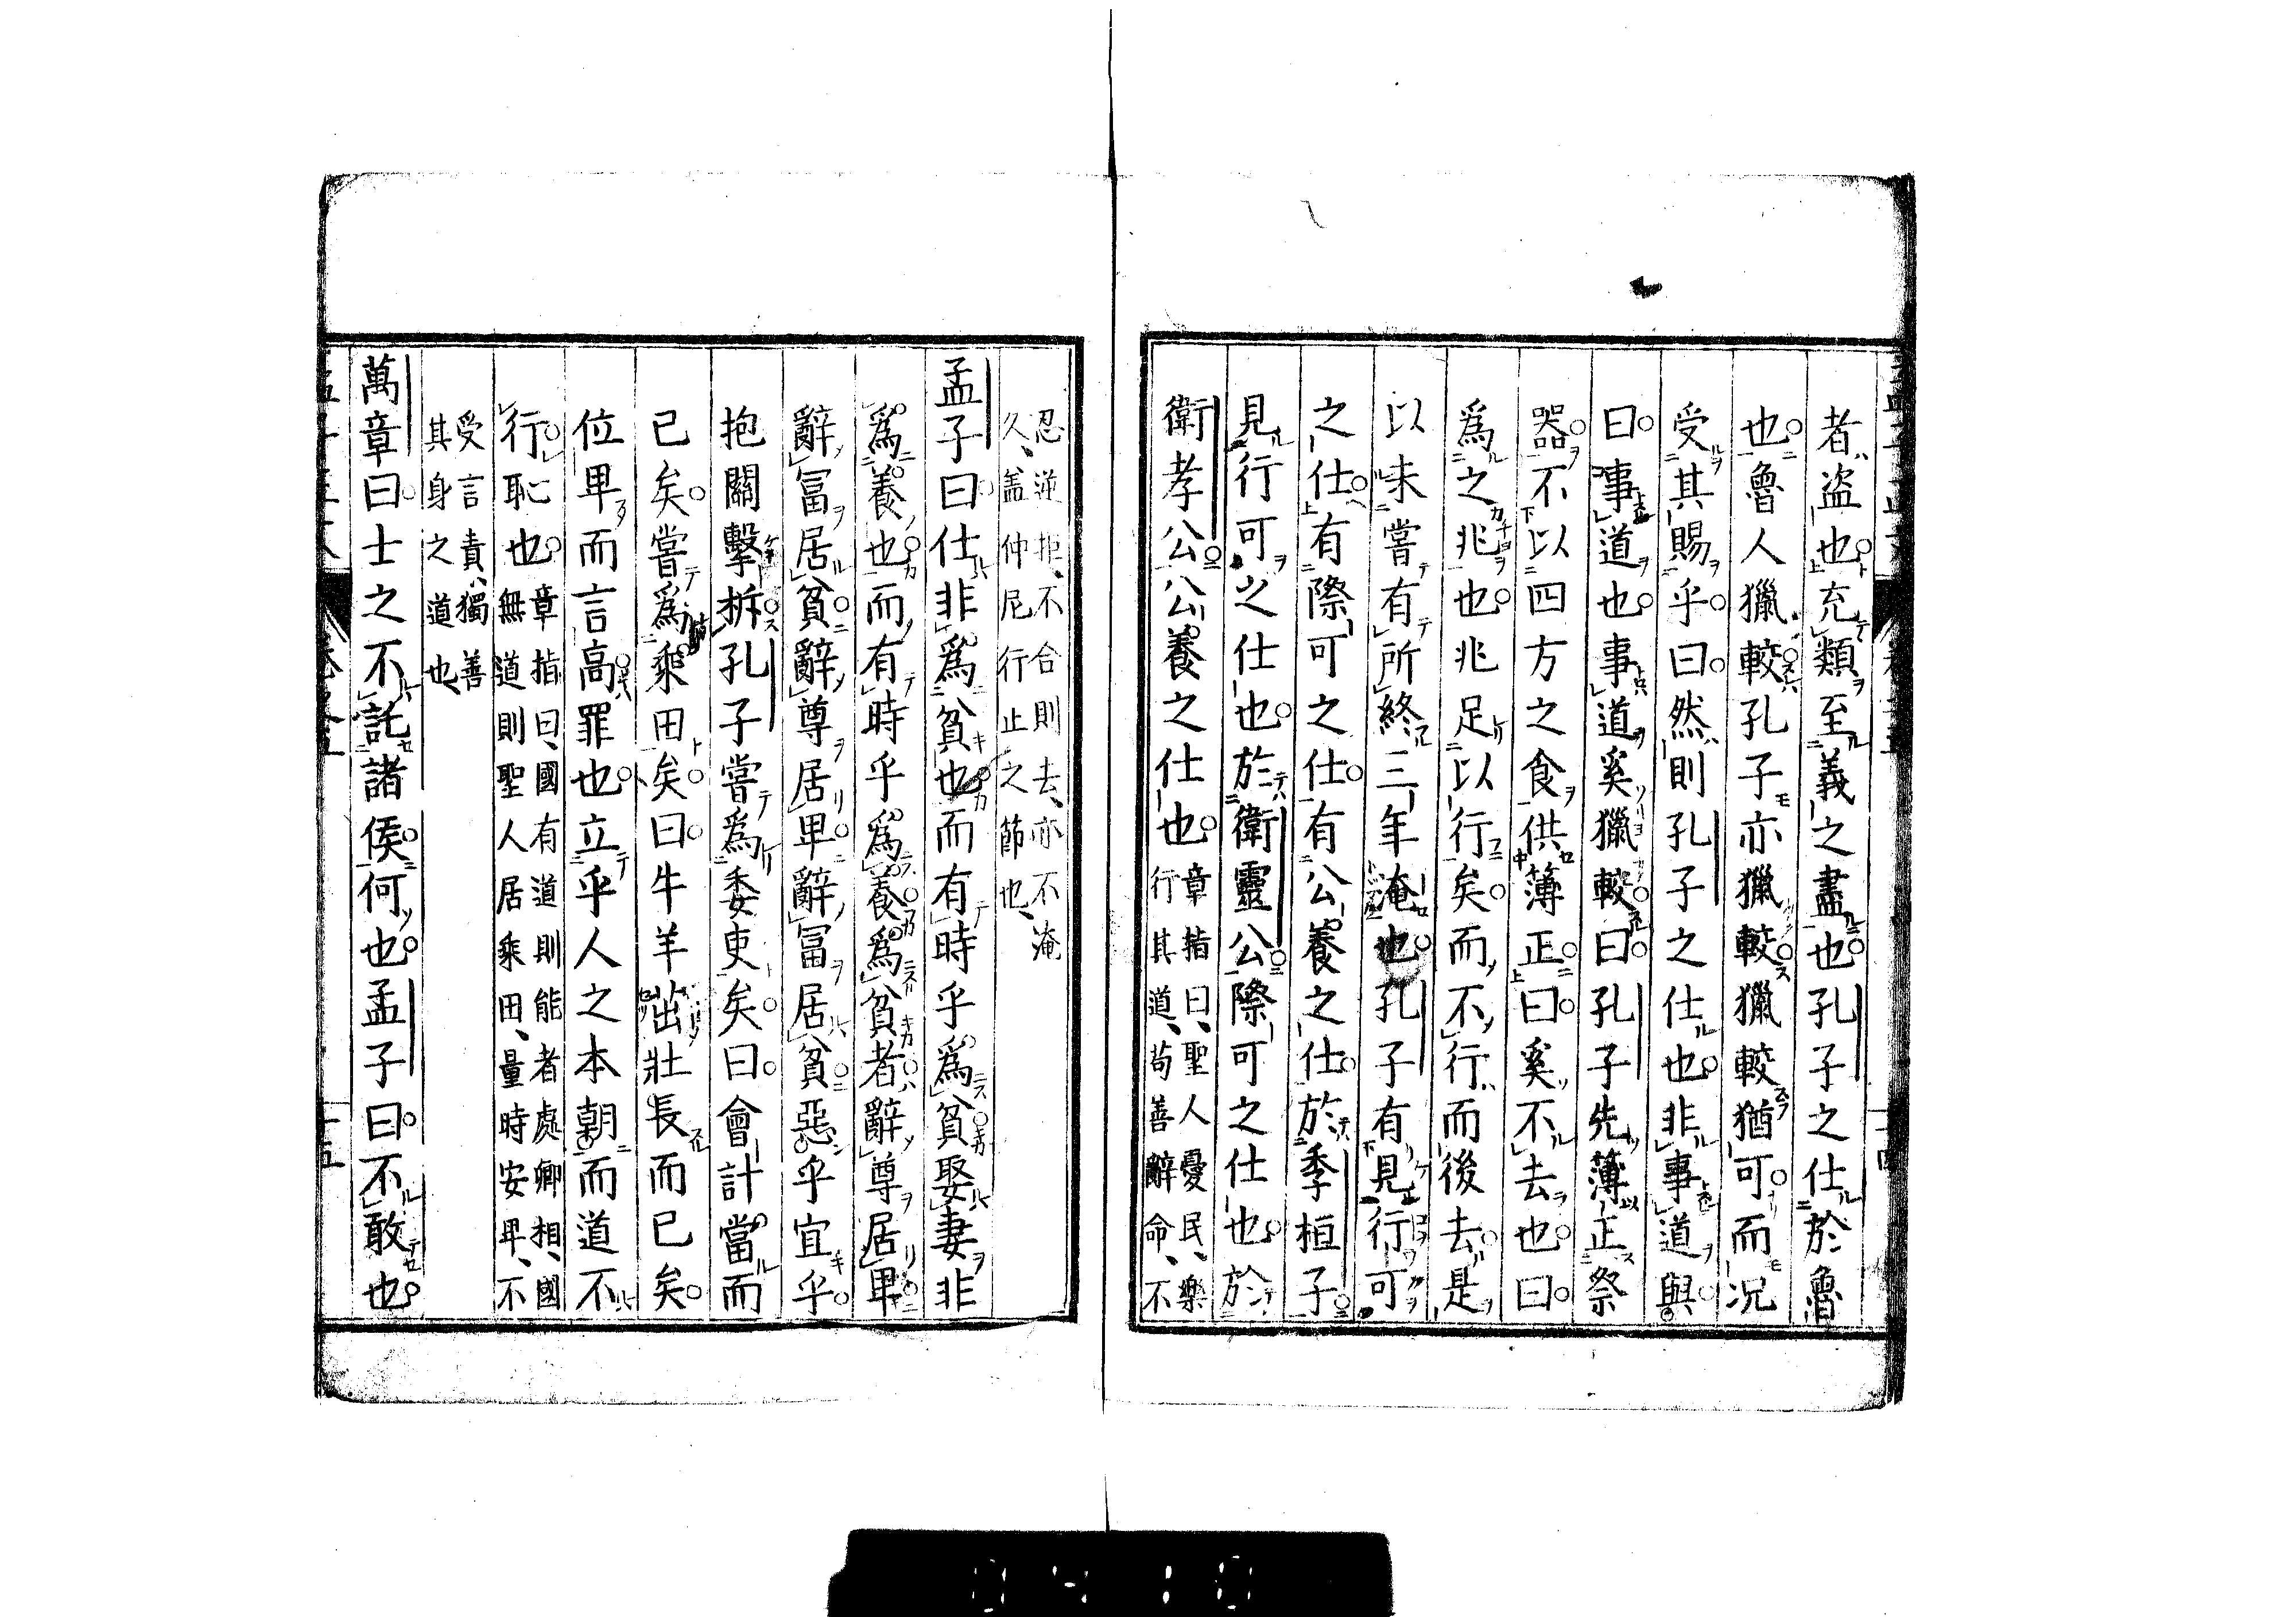 者盗也充類至義之盡也孔子之仕於魯
也魯人獵較孔子亦獵較獵較猶可而况
受其賜乎曰然則孔子之仕也非事道與
曰事道也事道奚獵較曰孔子先薄正祭
器不以四方之食供薄正曰奚不去也曰
爲之兆也兆足以行矣而不行而後去是
以未嘗有所終三年淹也孔子有見行可
之仕有際可之仕有公養之仕於季桓子
見行可之仕也於衛靈公際可之仕也於
衛孝公公養之仕也
章指曰、聖人憂民、樂
行其道、苟善辭命、不
忍逆拒、不合則去、亦不淹
久、盖仲尼行止之節也、
孟子曰仕非爲貧也而有時乎爲貧娶妻非
爲養也而有時乎爲養爲貧者辭尊居卑
辭冨居貧辭尊居卑辭冨居貧惡乎宜乎
抱關擊柝孔子嘗爲委吏矣曰會計當而
已矣嘗爲乘田矣曰牛羊茁壯長而已矣
位卑而言高罪也立乎人之本朝而道不
行恥也
章指曰、國有道則能者處卿相、國
無道則聖人居乘田、量時安卑、不
受言責、獨善
其身之道也、
萬章曰士之不託諸侯何也孟子曰不敢也